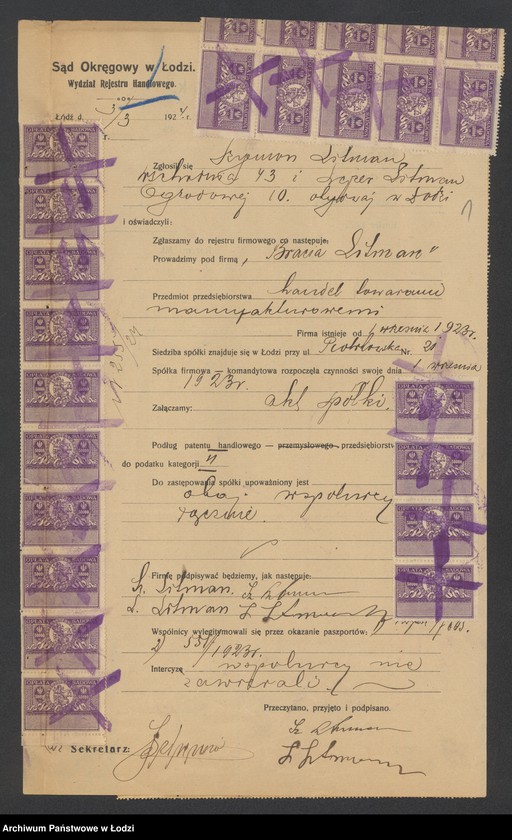 Sąd Okręgowy w Łodzi.
Wydział Rejestru Handlowego.
Łódź d. 3/3 192 r.
Zgłosił się Szymon Litman
Wschodnia 43 i Litman
Ogrodowej 10. w Łodzi
i oświadczyli:
Zgłaszamy do rejestru firmowego co następuje:
Prowadzimy pod firmą „Bracia Litman"
Przedmiot przedsiębiorstwa handel towarami
manufakturowemi
Firma istnieje od 1 września 1923 r.
Siedziba spółki znajduje się w Łodzi przy ul. Piotrkowska Nr. 20
Spółka firmowa — komandytowa rozpoczęła czynności swoje dnia 1 września
1923 r.
Załączamy: akt spółki.
Podług patentu handlowego — przemysłowego przedsiębiorstw
do podatku kategorji II
Do zastępowania spółki upoważniony jest
obaj wspólnicy
łącznie.
Firmę podpisywać będziemy, jak następuje:
Sz. Litman.
L. Litman
Wspólnicy wylegitymowali się przez okazanie paszportów:
2) 1923 r.
Intercyzę wspólnicy nie
zawierali.
Przeczytano, przyjęto i podpisano.
Sekretarz:
OPŁATA SĄDOWA
Archiwum Państwowe w Łodzi